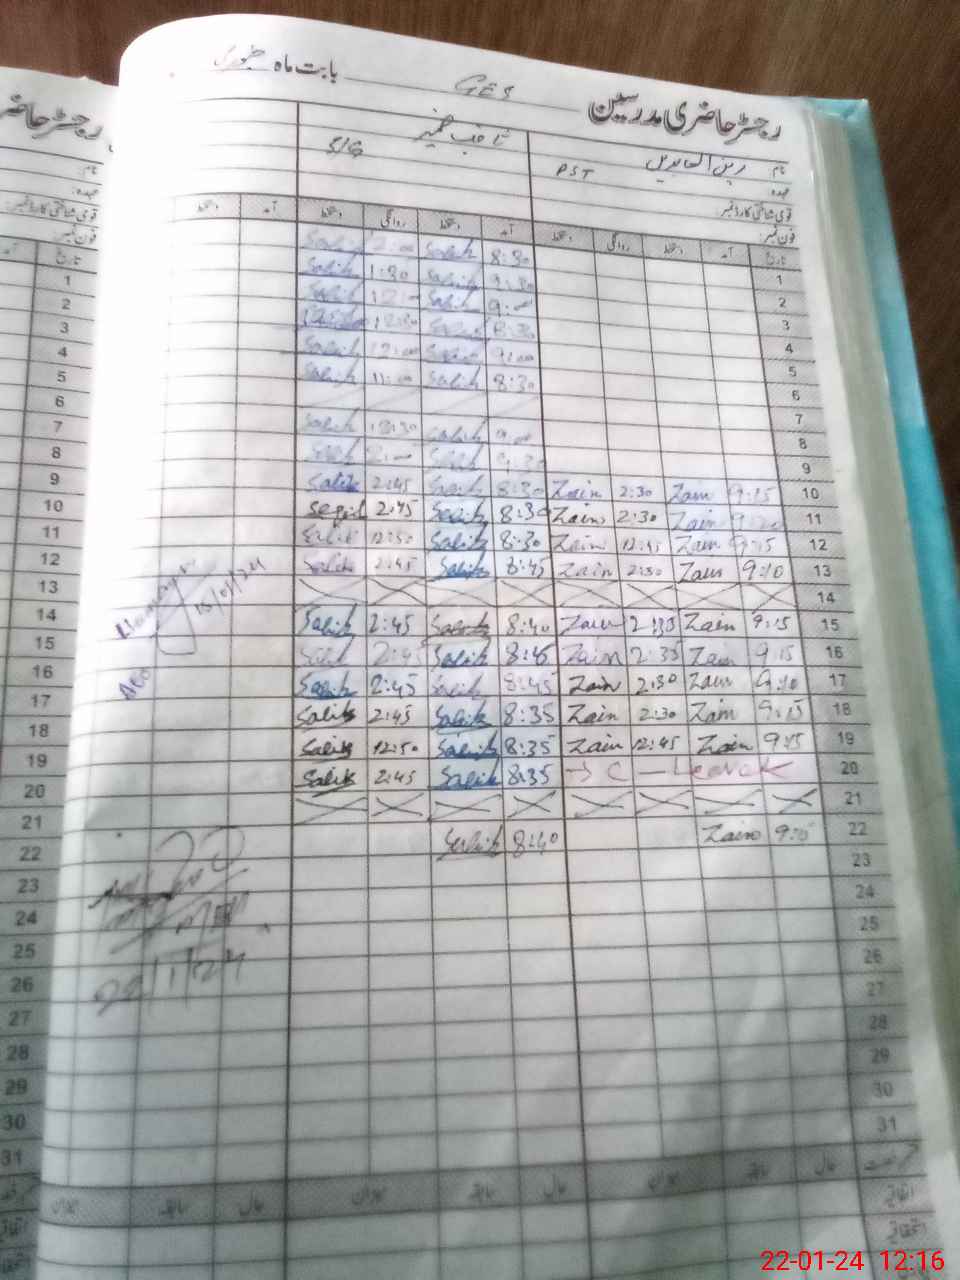 رجسٹر حاضری مدرسین GES بابت ماہ جنوری
نام زین العابدین ثاقب ضمیر
عہدہ PST S/G
قومی شناختی کارڈ نمبر:
فون نمبر:
تاریخ آمد دستخط روانگی دستخط آمد دستخط روانگی دستخط آمد دستخط
1 8:30 Salik 12:00 Salik
2 9:30 Salik 1:30 Salik
3 9:00 Salik Salik
4 8:30 Salik 12:30
5 9:00 Salik 12:00 Salik
6 8:30 Salik 11:00 Salik
7
8 9:00 Salik 12:30 Salik
9 9:30
10 9:15 Zain 2:30 Zain 8:30 Salik 2:45 Salik
11 Zain 2:30 Zain 8:30 Salik 2:45
12 9:15 Zain 12:45 Zain 8:30 Salik 12:50 Salik
13 9:10 Zain 2:30 Zain 8:45 Salik 2:45 Salik
14
15 9:15 Zain 2:30 Zain 8:40 Salik 2:45 Salik
16 9:15 Zain 2:35 Zain 8:45 Salik 2:45 Salik
17 9:10 Zain 2:30 Zain 8:45 Salik 2:45 Salik
18 9:15 Zain 2:30 Zain 8:35 Salik 2:45 Salik
19 9:15 Zain 12:45 Zain 8:35 Salik 12:50 Salik
20 → C — Leave 8:35 Salik 2:45 Salik
21
22 9:15 Zain 8:40 Salik
23
24
25
26
27
28
29
30
31
حال سابقہ میزان حال سابقہ میزان حال سابقہ میزان
اتفاقیہ
استحقاقیہ
15/01/24
AEO
22/1/24
رجسٹر حاضر
نام:
عہدہ:
قومی شناختی کارڈ نمبر:
فون نمبر:
تاریخ آمد
1
2
3
4
5
6
7
8
9
10
11
12
13
14
15
16
17
18
19
20
21
22
23
24
25
26
27
28
29
30
31
22-01-24 12:16